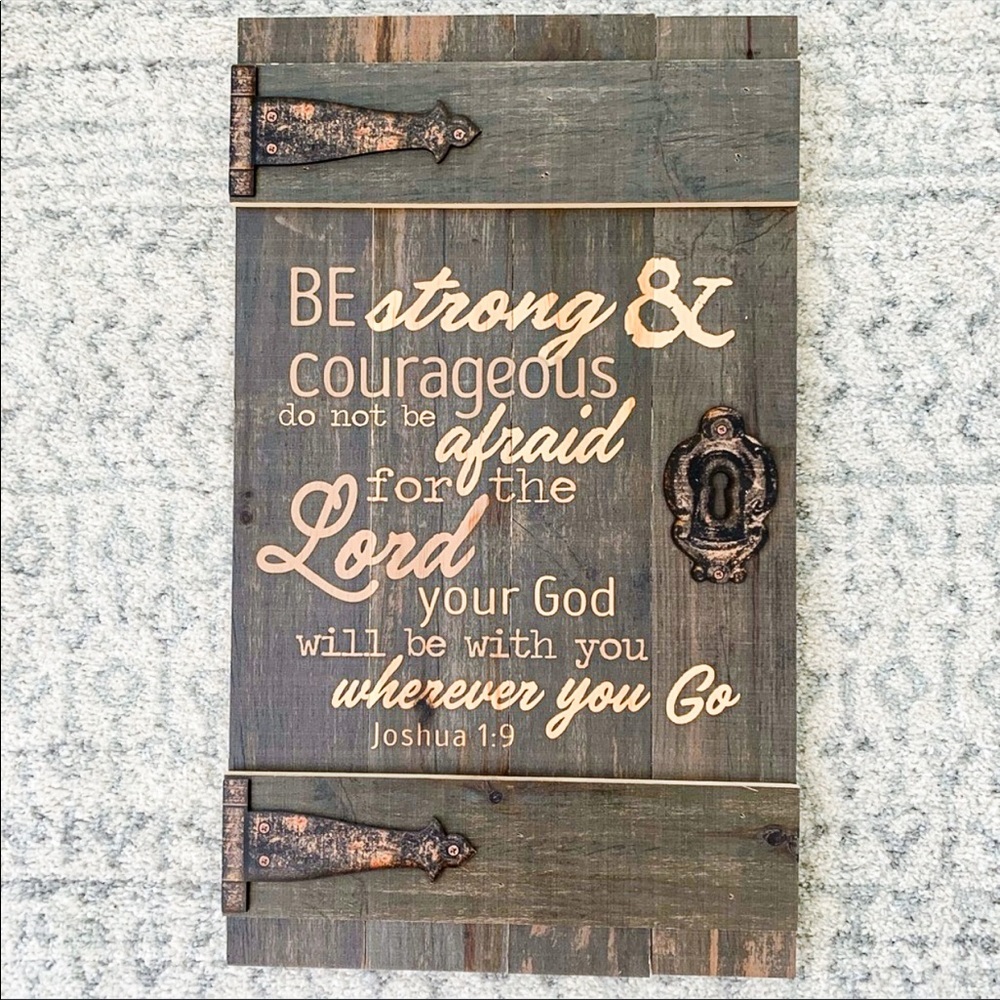 BE strong &
courageous
do not be
afraid
for the
Lord
your God
will be with you
wherever you Go
Joshua 1:9